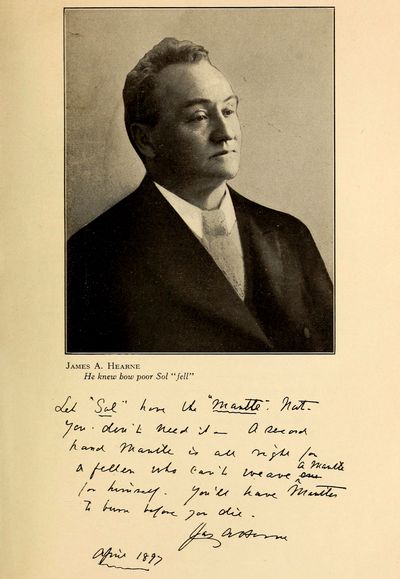 JAMES A. HEARNE
He knew how poor Sol "fell"
Let "Sol" have the "Mantle". Nat-
you don't need it - A second
hand Mantle is all right for
a fellow who can't weave a Mantle
for himself. You'll have Mantles
to burn before you die.
Jas A Herne
April 1897